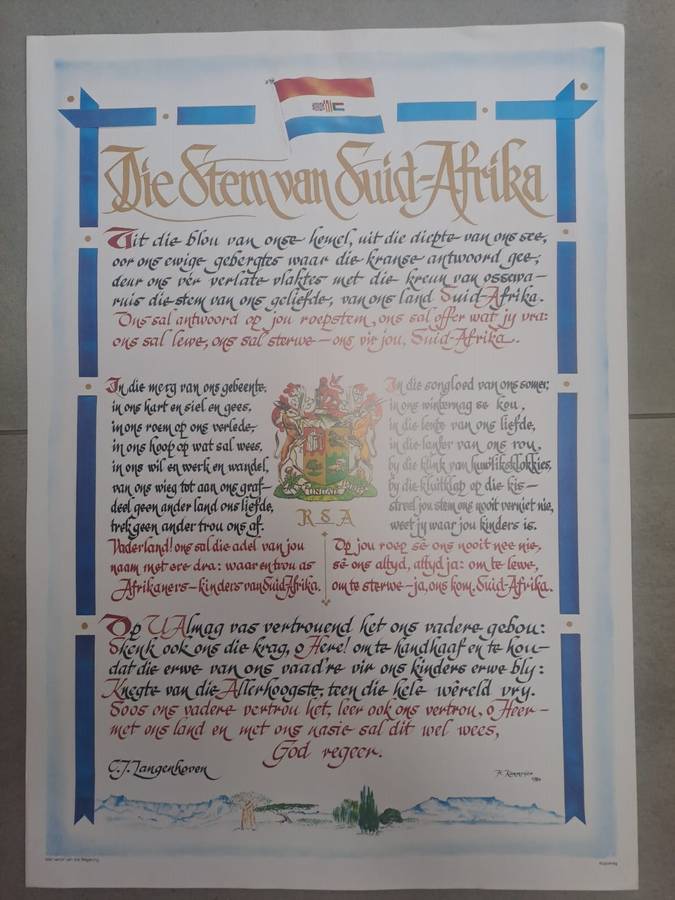 Die Stem van Suid-Afrika
Uit die blou van onse hemel, uit die diepte van ons see,
oor ons ewige gebergtes waar die kranse antwoord gee;
deur ons vêr verlate vlaktes met die kreun van ossewa—
ruis die stem van ons geliefde, van ons land Suid-Afrika.
Ons sal antwoord op jou roepstem, ons sal offer wat jy vra:
ons sal lewe, ons sal sterwe—ons vir jou, Suid-Afrika.
In die merg van ons gebeente,
in ons hart en siel en gees,
in ons roem op ons verlede,
in ons hoop op wat sal wees,
in ons wil en werk en wandel,
van ons wieg tot aan ons graf—
deel geen ander land ons liefde,
trek geen ander trou ons af.
Vaderland! ons sal die adel van jou
naam met ere dra: waar en trou as
Afrikaners—kinders van Suid-Afrika.
UNITATE VIRES
RSA
In die songloed van ons somer,
in ons winternag se kou,
in die lente van ons liefde,
in die lanfer van ons rou,
by die klink van huwliksklokkies,
by die kluitklap op die kis—
streel jou stem ons nooit verniet nie,
weet jy waar jou kinders is.
Op jou roep sê ons nooit nee nie,
sê ons altyd, altyd ja: om te lewe,
om te sterwe—ja, ons kom, Suid-Afrika.
Op U Almag vas vertrouend het ons vadere gebou:
Skenk ook ons die krag, o Here! om te handhaaf en te hou—
dat die erwe van ons vaad're vir ons kinders erwe bly:
Knegte van die Allerhoogste, teen die hele wêreld vry.
Soos ons vadere vertrou het, leer ook ons vertrou, o Heer—
met ons land en met ons nasie sal dit wel wees,
God regeer.
C.J. Langenhoven